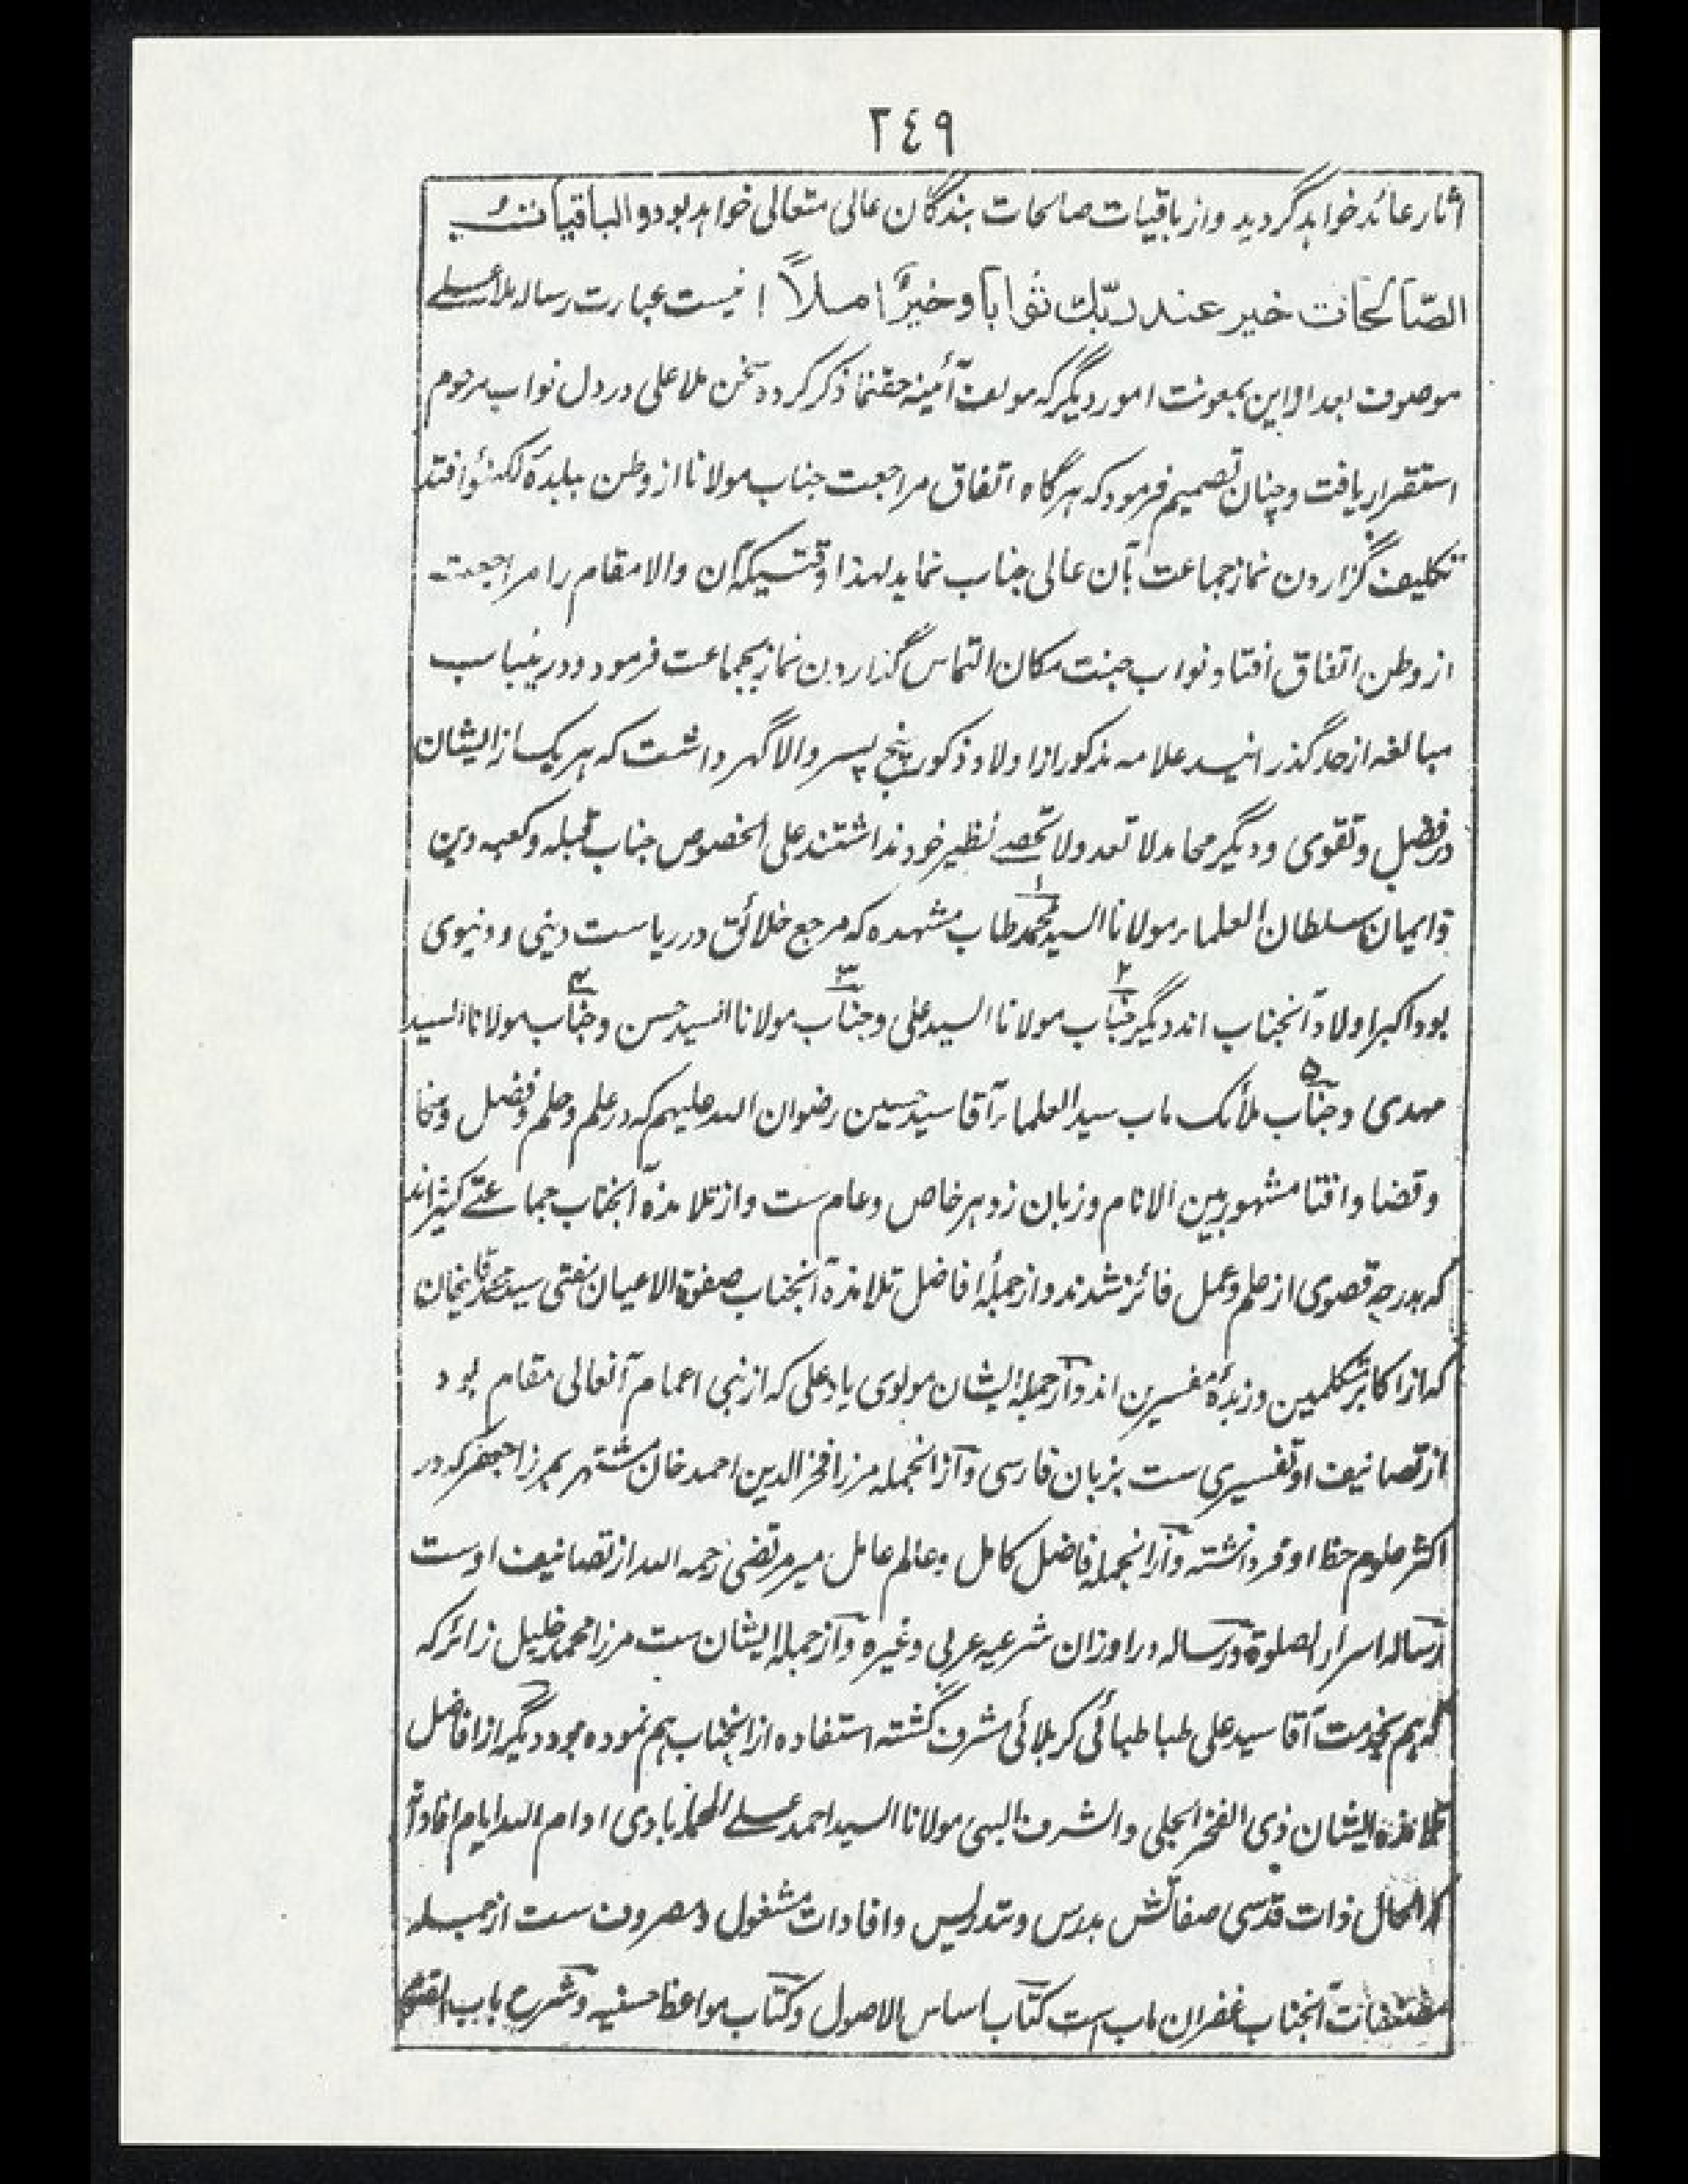 ٢٤٩
اثار عائد خواهد گردید واز باقیات صالحات بندگان عالی متعالی خواهد بود و الباقیات
الصّالحات خیر عند ربّك ثوابا وخیرٌ املاً انیست عبارت رساله ملا علی
موصوف بعد ازاین بمعونت امور دیگر که مولف آئینه حقنما ذکر کرده سخن ملا علی در دل نواب مرحوم
استقرار یافت وچنان تصمیم فرمود که هرگاه اتفاق مراجعت جناب مولانا از وطن ببلدهٔ لکهنؤ افتد
تکلیف گزاردن نماز جماعت بآن عالی جناب نماید لهذا وقتیکه آن والا مقام را مراجعت
از وطن اتفاق افتاد نواب جنت مکان التماس گذاردن نماز بجماعت فرمود ودرینباب
مبالغه از حد گذرانید علامه مذکور از اولاد ذکور پنج پسر والا گهر داشت که هر یک از ایشان
در فضل وتقوی ودیگر محامد لا تعد ولا تحصی نظیر خود نداشتند علی الخصوص جناب قبله وکعبه دین
وایمان سلطان العلماء مولانا السید محمد طاب مشهده که مرجع خلائق در ریاست دینی ودنیوی
بود اکبر اولاد آنجناب اند دیگر جناب مولانا السید علی وجناب مولانا السید حسن وجناب مولانا السید
مهدی وجناب ملائک ماب سید العلماء آقا سید حسین رضوان الله علیهم که در علم وحلم وفضل وسخا
وقضا وافتا مشهور بین الانام وزبان زد هر خاص وعام ست واز تلامذه آنجناب جماعتے کثیر اند
که بدرجه قصوی از علم وعمل فائز شدند واز جملهٔ افاضل تلامذهٔ آنجناب صفوة الاعیان مفتی سید محمد قلیخان
که از اکابر متکلمین وزبدهٔ مفسرین اند واز جمله ایشان مولوی یاد علی که از بنی اعمام آنعالی مقام بود
از تصانیف او تفسیری ست بزبان فارسی واز انجمله مرزا فخر الدین احمد خان مشتهر بمرزا جعفر که در
اکثر علوم حظ اوفر داشته واز انجمله فاضل کامل وعالم عامل میر مرتضی رحمه الله از تصانیف اوست
رساله اسرار الصلوة ورساله در اوزان شرعیه عربی وغیره واز جمله ایشان ست مرزا محمد خلیل زائر که
که هم بخدمت آقا سید علی طباطبائی کربلائی مشرف گشته استفاده از انجناب هم نموده بود دیگر از افاضل
تلامذه ایشان ذی الفخر الجلی والشرف البهی مولانا السید احمد علی المحمدابادی ادام الله ایام افاداته
که الحال ذات قدسی صفاتش بدرس وتدریس وافادات مشغول ومصروف ست از جمله
مصنفات آنجناب غفران ماب ست کتاب اساس الاصول وکتاب مواعظ حسنیه وشرح باب